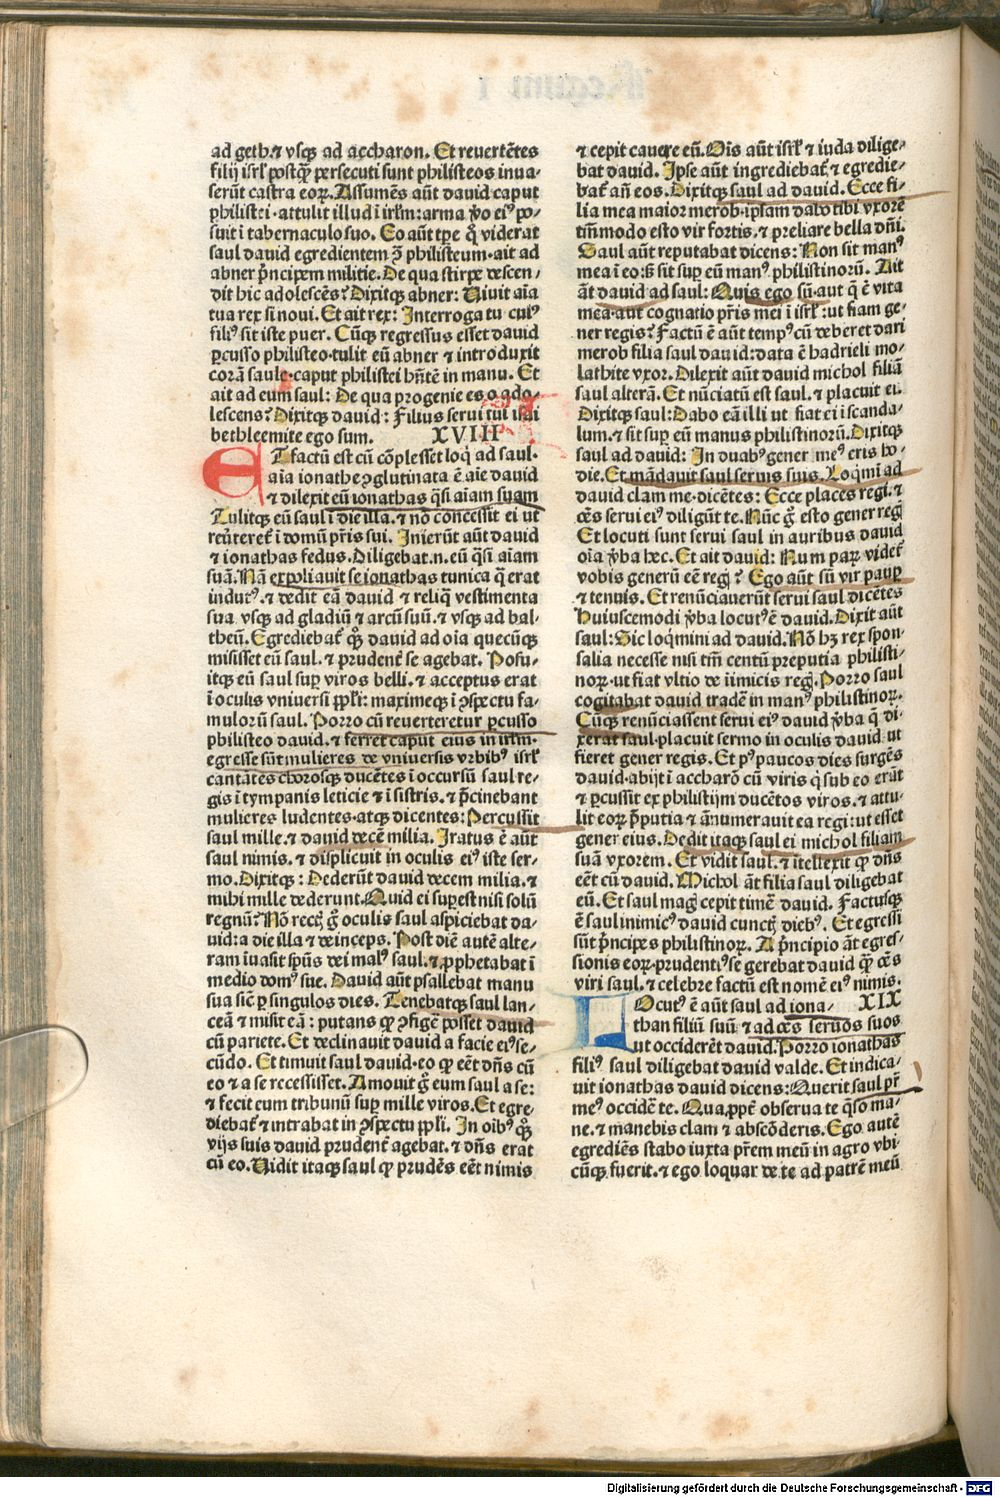 ad geth. ⁊ vsqꝫ ad accharon. Et reuertẽtes
filij isrl̃ postq̃ꝫ persecuti sunt philisteos inua⸗
serũt castra eoꝝ. Assumẽs aũt dauid caput
philistei · attulit illud ĩ irlm̃: arma ṽo eiꝰ po⸗
suit ĩ tabernaculo suo. Eo aũt tꝑe q̊ viderat
saul dauid egredientem ꝯ̃ philisteum · ait ad
abner pͥncipem militie. De qua stirpe descen⸗
dit hic adolescẽs? Dixitqꝫ abner: Viuit aĩa
tua rex si noui. Et ait rex: Interroga tu cuiꝰ
filiꝰ sit iste puer. Cũqꝫ regressus esset dauid
ꝑcusso philisteo · tulit eũ abner ⁊ introduxit
corã saule · caput philistei hñtẽ in manu. Et
ait ad eum saul: De qua progenie es o ado⸗
lescens? Dixitqꝫ dauid: Filius serui tui isai
bethleemite ego sum. XVIII
ET factũ est cũ cõplesset loq̇ ad saul ·
aĩa ionathe ꝯglutinata ẽ aĩe dauid
⁊ dilexit eũ ionathas q̃si aĩam suam
Tulitqꝫ eũ saul ĩ die illa. ⁊ nõ concessit ei ut
reũteret᷑ ĩ domũ pr̃is sui. Inierũt aũt dauid
⁊ ionathas fedus. Diligebat .n. eũ q̃si aĩam
suã. Nã expoliauit se ionathas tunica q̃ erat
indutꝰ. ⁊ dedit eã dauid ⁊ reliq̃ vestimenta
sua vsqꝫ ad gladiũ ⁊ arcũ suũ. ⁊ vsqꝫ ad bal⸗
theũ. Egrediebat᷑ qꝫ dauid ad oĩa quecũqꝫ
misisset eũ saul. ⁊ prudent᷑ se agebat. Posu⸗
itqꝫ eũ saul suꝑ viros belli. ⁊ acceptus erat
ĩ oculis vniuersi ppl̃i: maximeqꝫ ĩ ꝯspectu fa⸗
mulorũ saul. Porro cũ reuerteretur ꝑcusso
philisteo dauid. ⁊ ferret caput eius in irlm̃ ·
egresse sũt mulieres de vniuersis vrbibꝰ isrl̃
cantãtes chorosqꝫ ducẽtes ĩ occursũ saul re⸗
gis ĩ tympanis leticie ⁊ ĩ sistris. ⁊ p̃cinebant
mulieres ludentes · atqꝫ dicentes: Percussit
saul mille. ⁊ dauid decẽ milia. Iratus ẽ aũt
saul nimis. ⁊ displicuit in oculis eiꝰ iste ser⸗
mo. Dixitqꝫ: Dederũt dauid decem milia. ⁊
mihi mille dederunt. Quid ei suꝑest nisi solũ
regnũ? Nõ rectꝭ g̊ oculis saul aspiciebat da⸗
uid: a die illa ⁊ deinceps. Post diẽ autẽ alte⸗
ram ĩuasit sp̃us dei malꝰ saul. ⁊ ꝓphetabat ĩ
medio domꝰ sue. Dauid aũt psallebat manu
sua sic̃ ꝑ singulos dies. Tenebatqꝫ saul lan⸗
ceã ⁊ misit eã: putans ꝙ ꝯfigẽ posset dauid
cũ pariete. Et declinauit dauid a facie eiꝰ se⸗
cũdo. Et timuit saul dauid · eo ꝙ eẽt dñs cũ
eo ⁊ a se recessisset. Amouit g̊ eum saul a se:
⁊ fecit eum tribunũ suꝑ mille viros. Et egre⸗
diebat᷑ ⁊ intrabat in ꝯspectu ppl̃i. In oĩbꝰ qꝫ
vijs suis dauid prudent᷑ agebat. ⁊ dñs erat
cũ eo. Vidit itaqꝫ saul ꝙ prudẽs eẽt nimis
⁊ cepit cauere eũ. Oĩs aũt isrl̃ ⁊ iuda dilige⸗
bat dauid. Ipse aũt ingrediebat᷑ ⁊ egredie⸗
bat᷑ añ eos. Dixitqꝫ saul ad dauid. Ecce fi⸗
lia mea maior merob · ipsam dabo tibi vxorẽ
tm̃modo esto vir fortis. ⁊ preliare bella dñi.
Saul aũt reputabat dicens: Non sit manꝰ
mea ĩ eo: sꝫ sit suꝑ eũ manꝰ philistinorũ. Ait
ãt dauid ad saul: Quis ego sũ · aut q̃ ẽ vita
mea · aut cognatio pr̃is mei ĩ isrl̃: ut fiam ge⸗
ner regis? Factũ ẽ aũt tempꝰ cũ deberet dari
merob filia saul dauid: data ẽ hadrieli mo⸗
lathite vxor. Dilexit aũt dauid michol filiã
saul alterã. Et nũciatũ est saul. ⁊ placuit ei.
Dixitqꝫ saul: Dabo eã illi ut fiat ei ĩ scanda⸗
lum. ⁊ sit suꝑ eũ manus philistinorũ. Dixitqꝫ
saul ad dauid: In duabꝰ gener meꝰ eris ho⸗
die. Et mãdauit saul seruis suis. Loq̇mi ad
dauid clam me · dicẽtes: Ecce places regi. ⁊
oẽs serui eiꝰ diligũt te. Nũc g̊ esto gener regꝭ
Et locuti sunt serui saul in auribus dauid
oĩa ṽba hec. Et ait dauid: Num parꝝ videt᷑
vobis generũ eẽ regꝭ? Ego aũt sũ vir pauꝑ
⁊ tenuis. Et renũciauerũt serui saul dicẽtes
Huiuscemodi ṽba locutꝰ ẽ dauid. Dixit aũt
saul: Sic loq̇mini ad dauid. Nõ hꝫ rex spon⸗
salia necesse nisi tm̃ centũ preputia philisti⸗
noꝝ · ut fiat vltio de ĩimicis regꝭ. Porro saul
cogitabat dauid tradẽ in manꝰ philistinoꝝ.
Cũqꝫ renũciassent serui eiꝰ dauid ṽba q̃ di⸗
xerat saul · placuit sermo in oculis dauid ut
fieret gener regis. Et pꝰ paucos dies surgẽs
dauid · abijt ĩ accharõ cũ viris q̇ sub eo erãt
⁊ ꝑcussit ex philistijm ducẽtos viros. ⁊ attu⸗
lit eoꝝ p̃putia ⁊ ãnumerauit ea regi: ut esset
gener eius. Dedit itaqꝫ saul ei michol filiam
suã vxorem. Et vidit saul. ⁊ ĩtellexit ꝙ dñs
eẽt cũ dauid. Michol ãt filia saul diligebat
eũ. Et saul magꝭ cepit timẽ dauid. Factusqꝫ
ẽ saul inimicꝰ dauid cunctꝭ diebꝰ. Et egressi
sũt pͥncipes philistinoꝝ. A pͥncipio ãt egres⸗
sionis eoꝝ · prudentiꝰ se gerebat dauid q̃ꝫ oẽs
viri saul. ⁊ celebre factũ est nomẽ eiꝰ nimis.
LOcutꝰ ẽ aũt saul ad iona⸗ XIX
than filiũ suũ ⁊ ad oẽs seruos suos
ut occiderẽt dauid. Porro ionathas
filiꝰ saul diligebat dauid valde. Et indica⸗
uit ionathas dauid dicens: Querit saul pr̃
meꝰ occidẽ te. Qua,ppẽ obserua te q̃so ma⸗
ne. ⁊ manebis clam ⁊ abscõderis. Ego autẽ
egrediẽs stabo iuxta pr̃em meũ in agro vbi⸗
cũqꝫ fuerit. ⁊ ego loquar de te ad patrẽ meũ
Digitalisierung gefördert durch die Deutsche Forschungsgemeinschaft - DFG